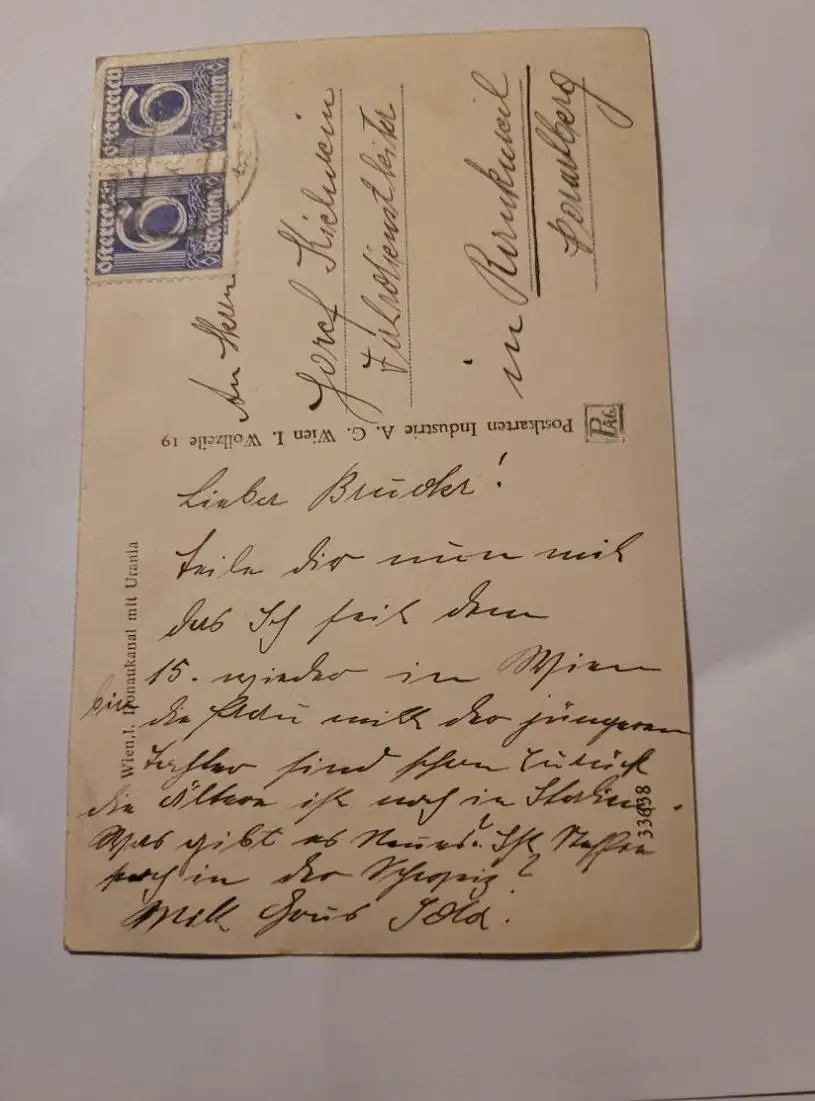 Österreich 6 Groschen
Österreich 6 Groschen
An Herrn
Josef
Fahrdienstleiter
in Rankweil
Vorarlberg
PAG
Postkarten Industrie A. G. Wien I. Wollzeile 19
Wien, I. Donaukanal mit Urania
33638
Lieber Bruder!
teile dir nun mit
das Ich seit dem
15. wieder in Wien
bin
die Frau mitt der jüngeren
Tochter sind schon zurück
die Ältere ist noch in
Was gibt es Neues? Ist
noch in der Schweiz?
Mitt Grus